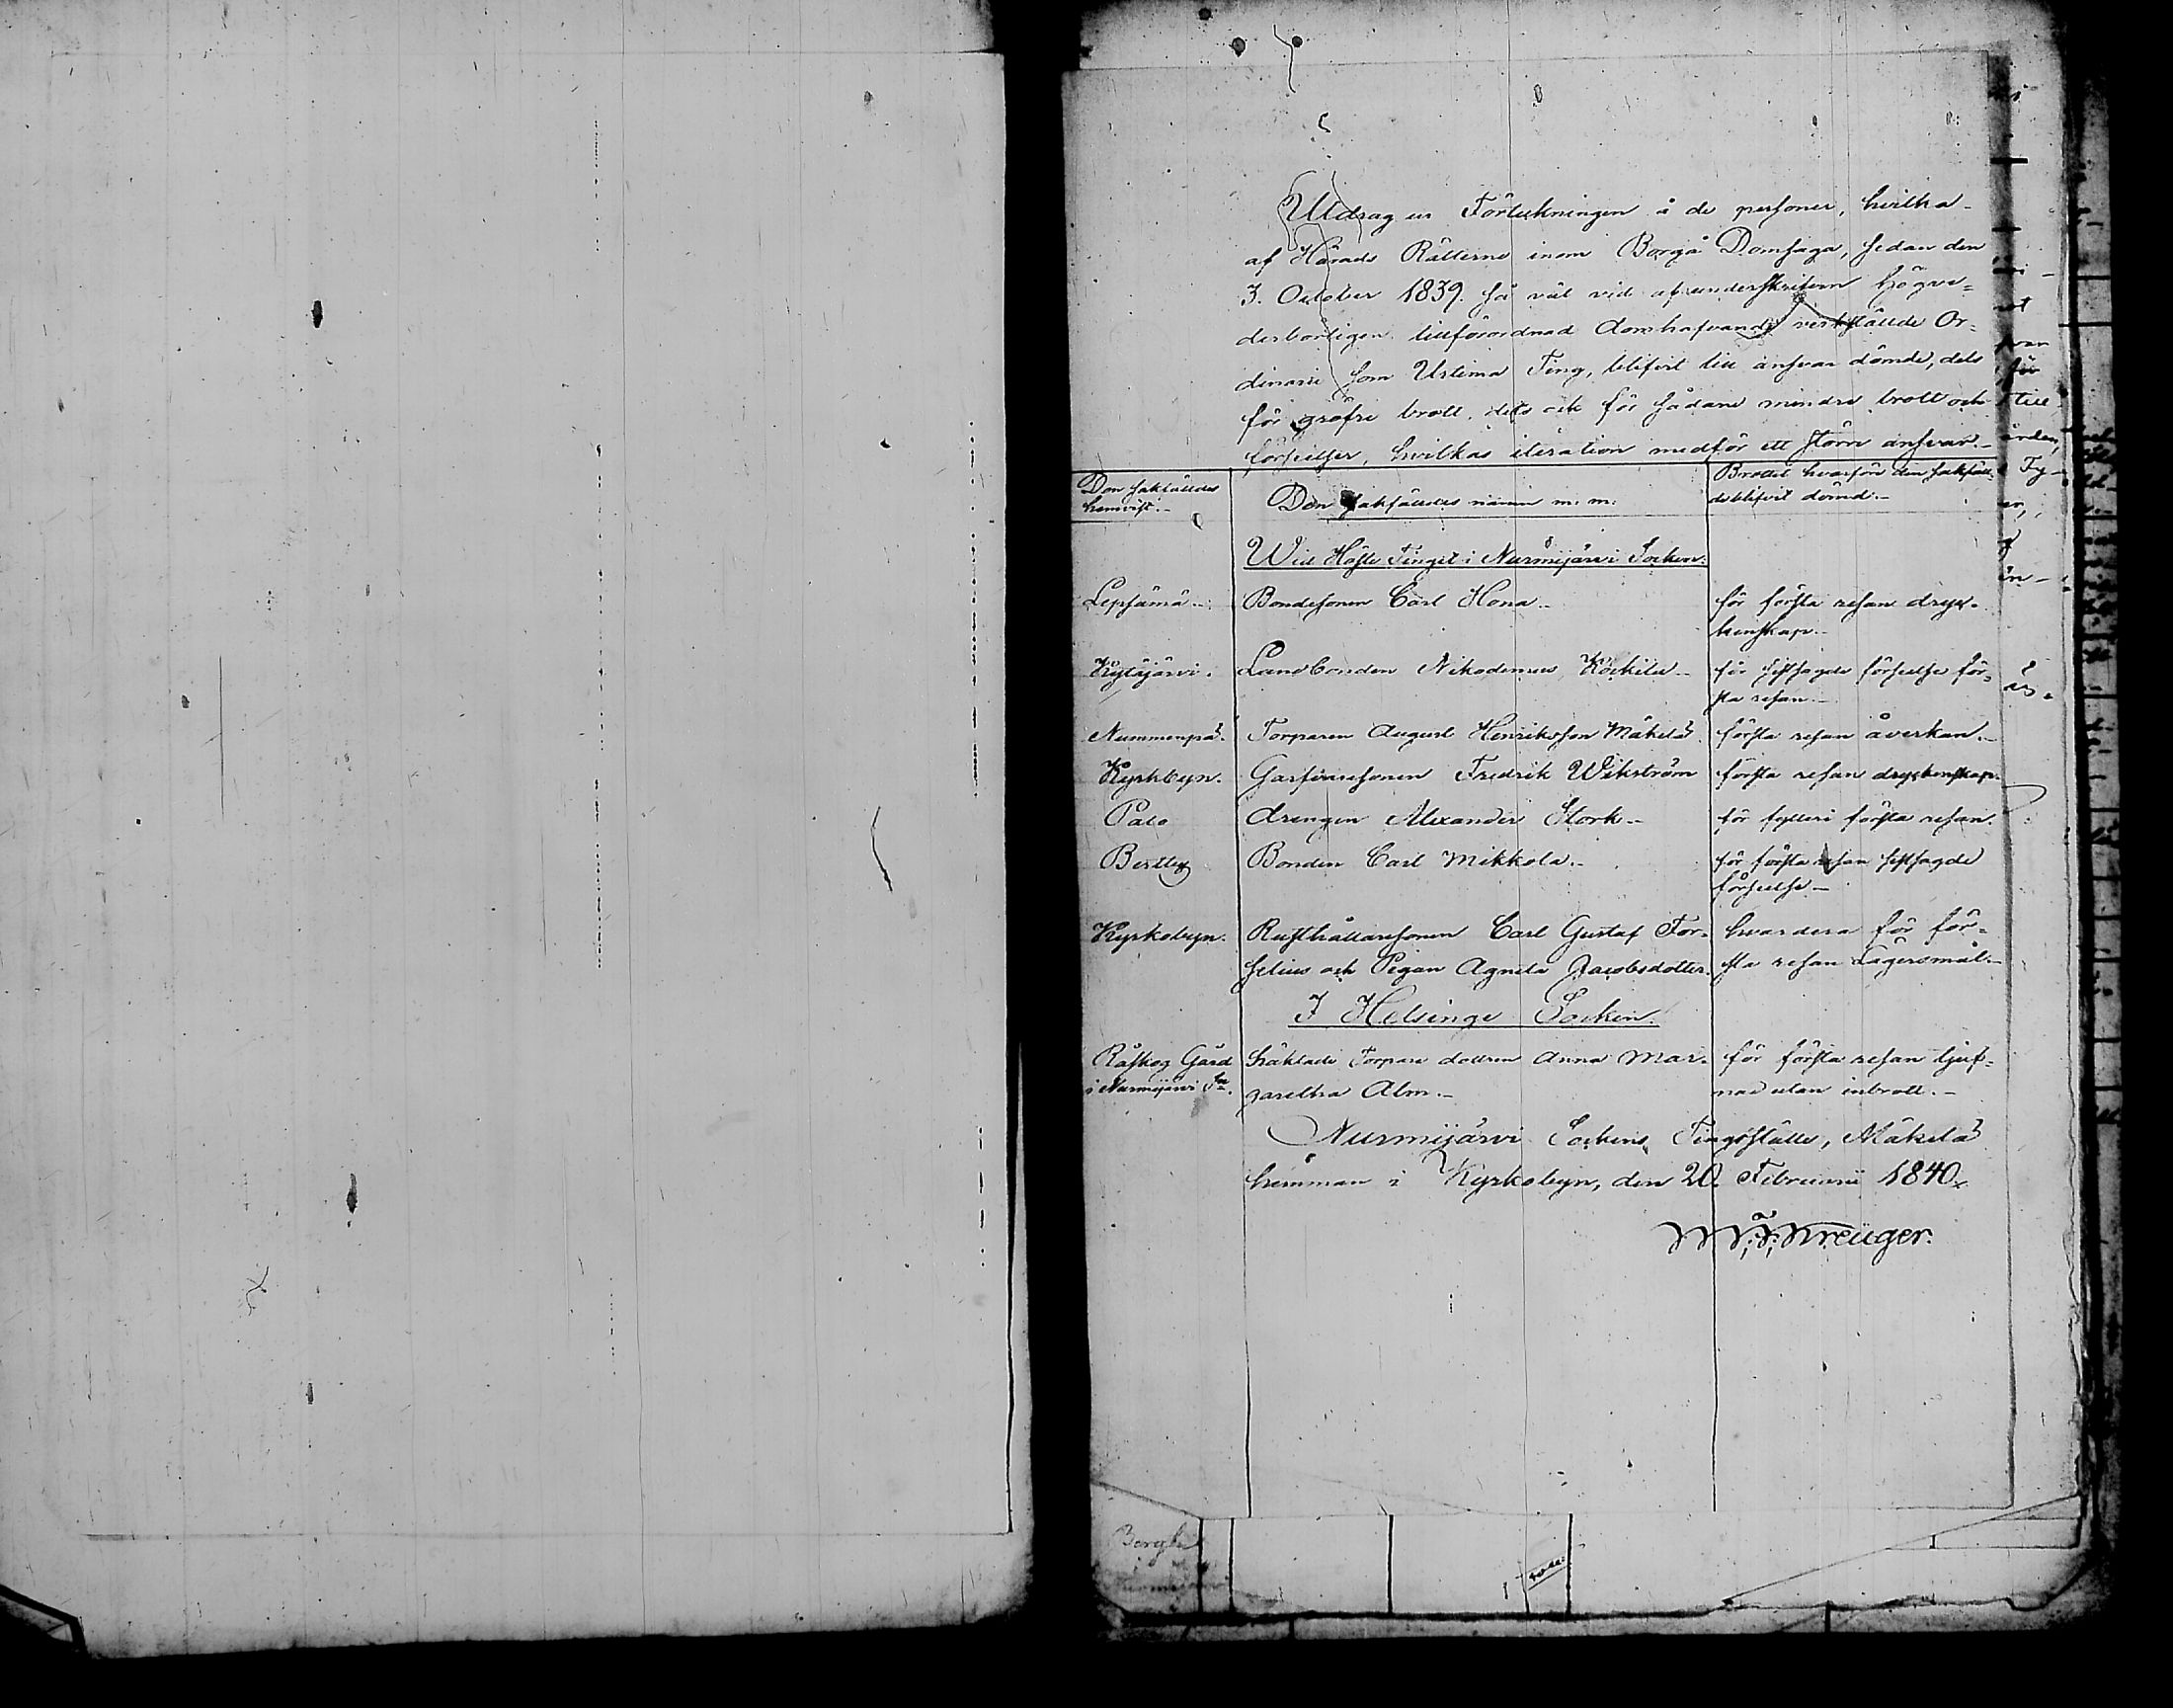 Utdrag ur Förteckningen å de personer, hvilka
af Härads Rätterne inom Borgå Domsaga, sedan den
3. October 1839. så väl vid af underskrifven högve=
derbörligen tillförordnad domhafvande verkstälde Or=
dinarie som Urtima Ting, blifvit till ansvar dömde, dels
för gröfre brott, dels ock för sådane mindre brott och
förseelser, hvilkas iteration medför ett större ansvar.-
Den sakfälldes
hemvist.-
Den sakfälldes namn m. m.
Brottet hvarföre den sakfäll-
de blifvit dömd.-
Wid Höste Tinget i Nurmijärvi Socken.
Lepsämä.- Bondesonen Carl Hona.- för första resan dryc-
kenskap.-
Kytäjärvi. Landbonden Nikodemus Köckilä.- för sistsagde förseelse för-
sta resan.-
Nummenpää. Torparen August Henriksson Mäkelä. första resan åverkan.-
Kyrkbyn. Garfvaresonen Fredrik Wikström första resan dryckenskap.
Palo drengen Alexander Stork.- för fylleri första resan.
Bertby Bonden Carl Mikkola.- för första resan sistsagde
förseelse.-
Kyrkobyn. Rusthållaresonen Carl Gustaf For-
hvardera för för-
selius och Pigan Agneta Jacobsdotter. sta resan Lägersmål.-
I Helsinge Socken.
Råskog Gård häktade Torpare dottren Anna Mar- för första resan tjuf-
i Nurmijärvi Sn. garetha Alm.- nad utan inbrott.-
Nurmijärvi Sockens Tingsställe, Mäkelä
hemman i Kyrkobyn, den 20. Februarii 1840.
W. F. Kreuger.